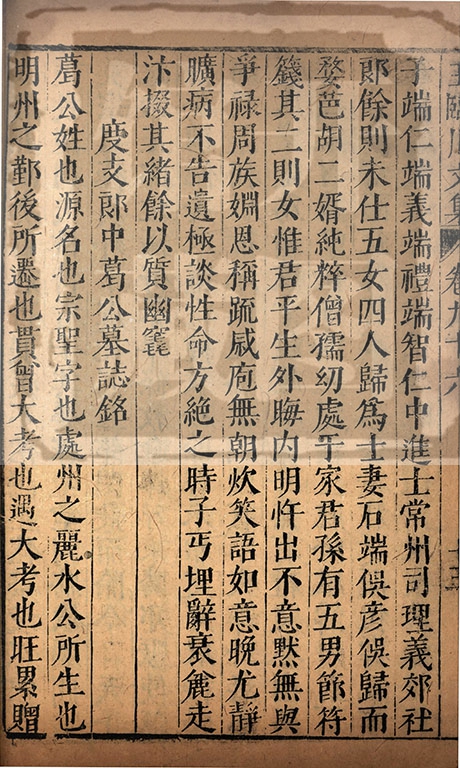 王臨川文集 卷九十六 十三
子端仁端義端禮端智仁中進士常州司理義郊社
郎餘則未仕五女四人歸為士妻石端俁彥俁歸而
婺芭胡二婿純粹僧孺幼處于家君孫有五男節符
籛其二則女惟君平生外晦内明忤出不意黙無與
爭禄周族婣恩稱䟽戚庖無朝炊笑語如意晚尤靜
曠病不告遺極談性命方絶之時子丐埋辭衰麄走
汴掇其緒餘以質幽竁
度支郎中葛公墓誌銘
葛公姓也源名也宗聖字也處州之麗水公所生也
明州之鄞後所遷也貫曾大考也遇大考也旺累贈